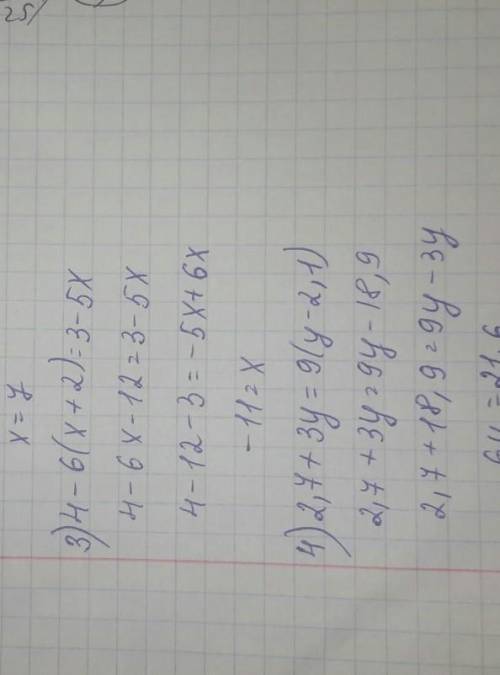 25)
x = 7
3) 4 - 6(x + 2) = 3 - 5x
4 - 6x - 12 = 3 - 5x
4 - 12 - 3 = -5x + 6x
-11 = x
4) 2,7 + 3y = 9(y - 2,1)
2,7 + 3y = 9y - 18,9
2,7 + 18,9 = 9y - 3y
6y = 21,6